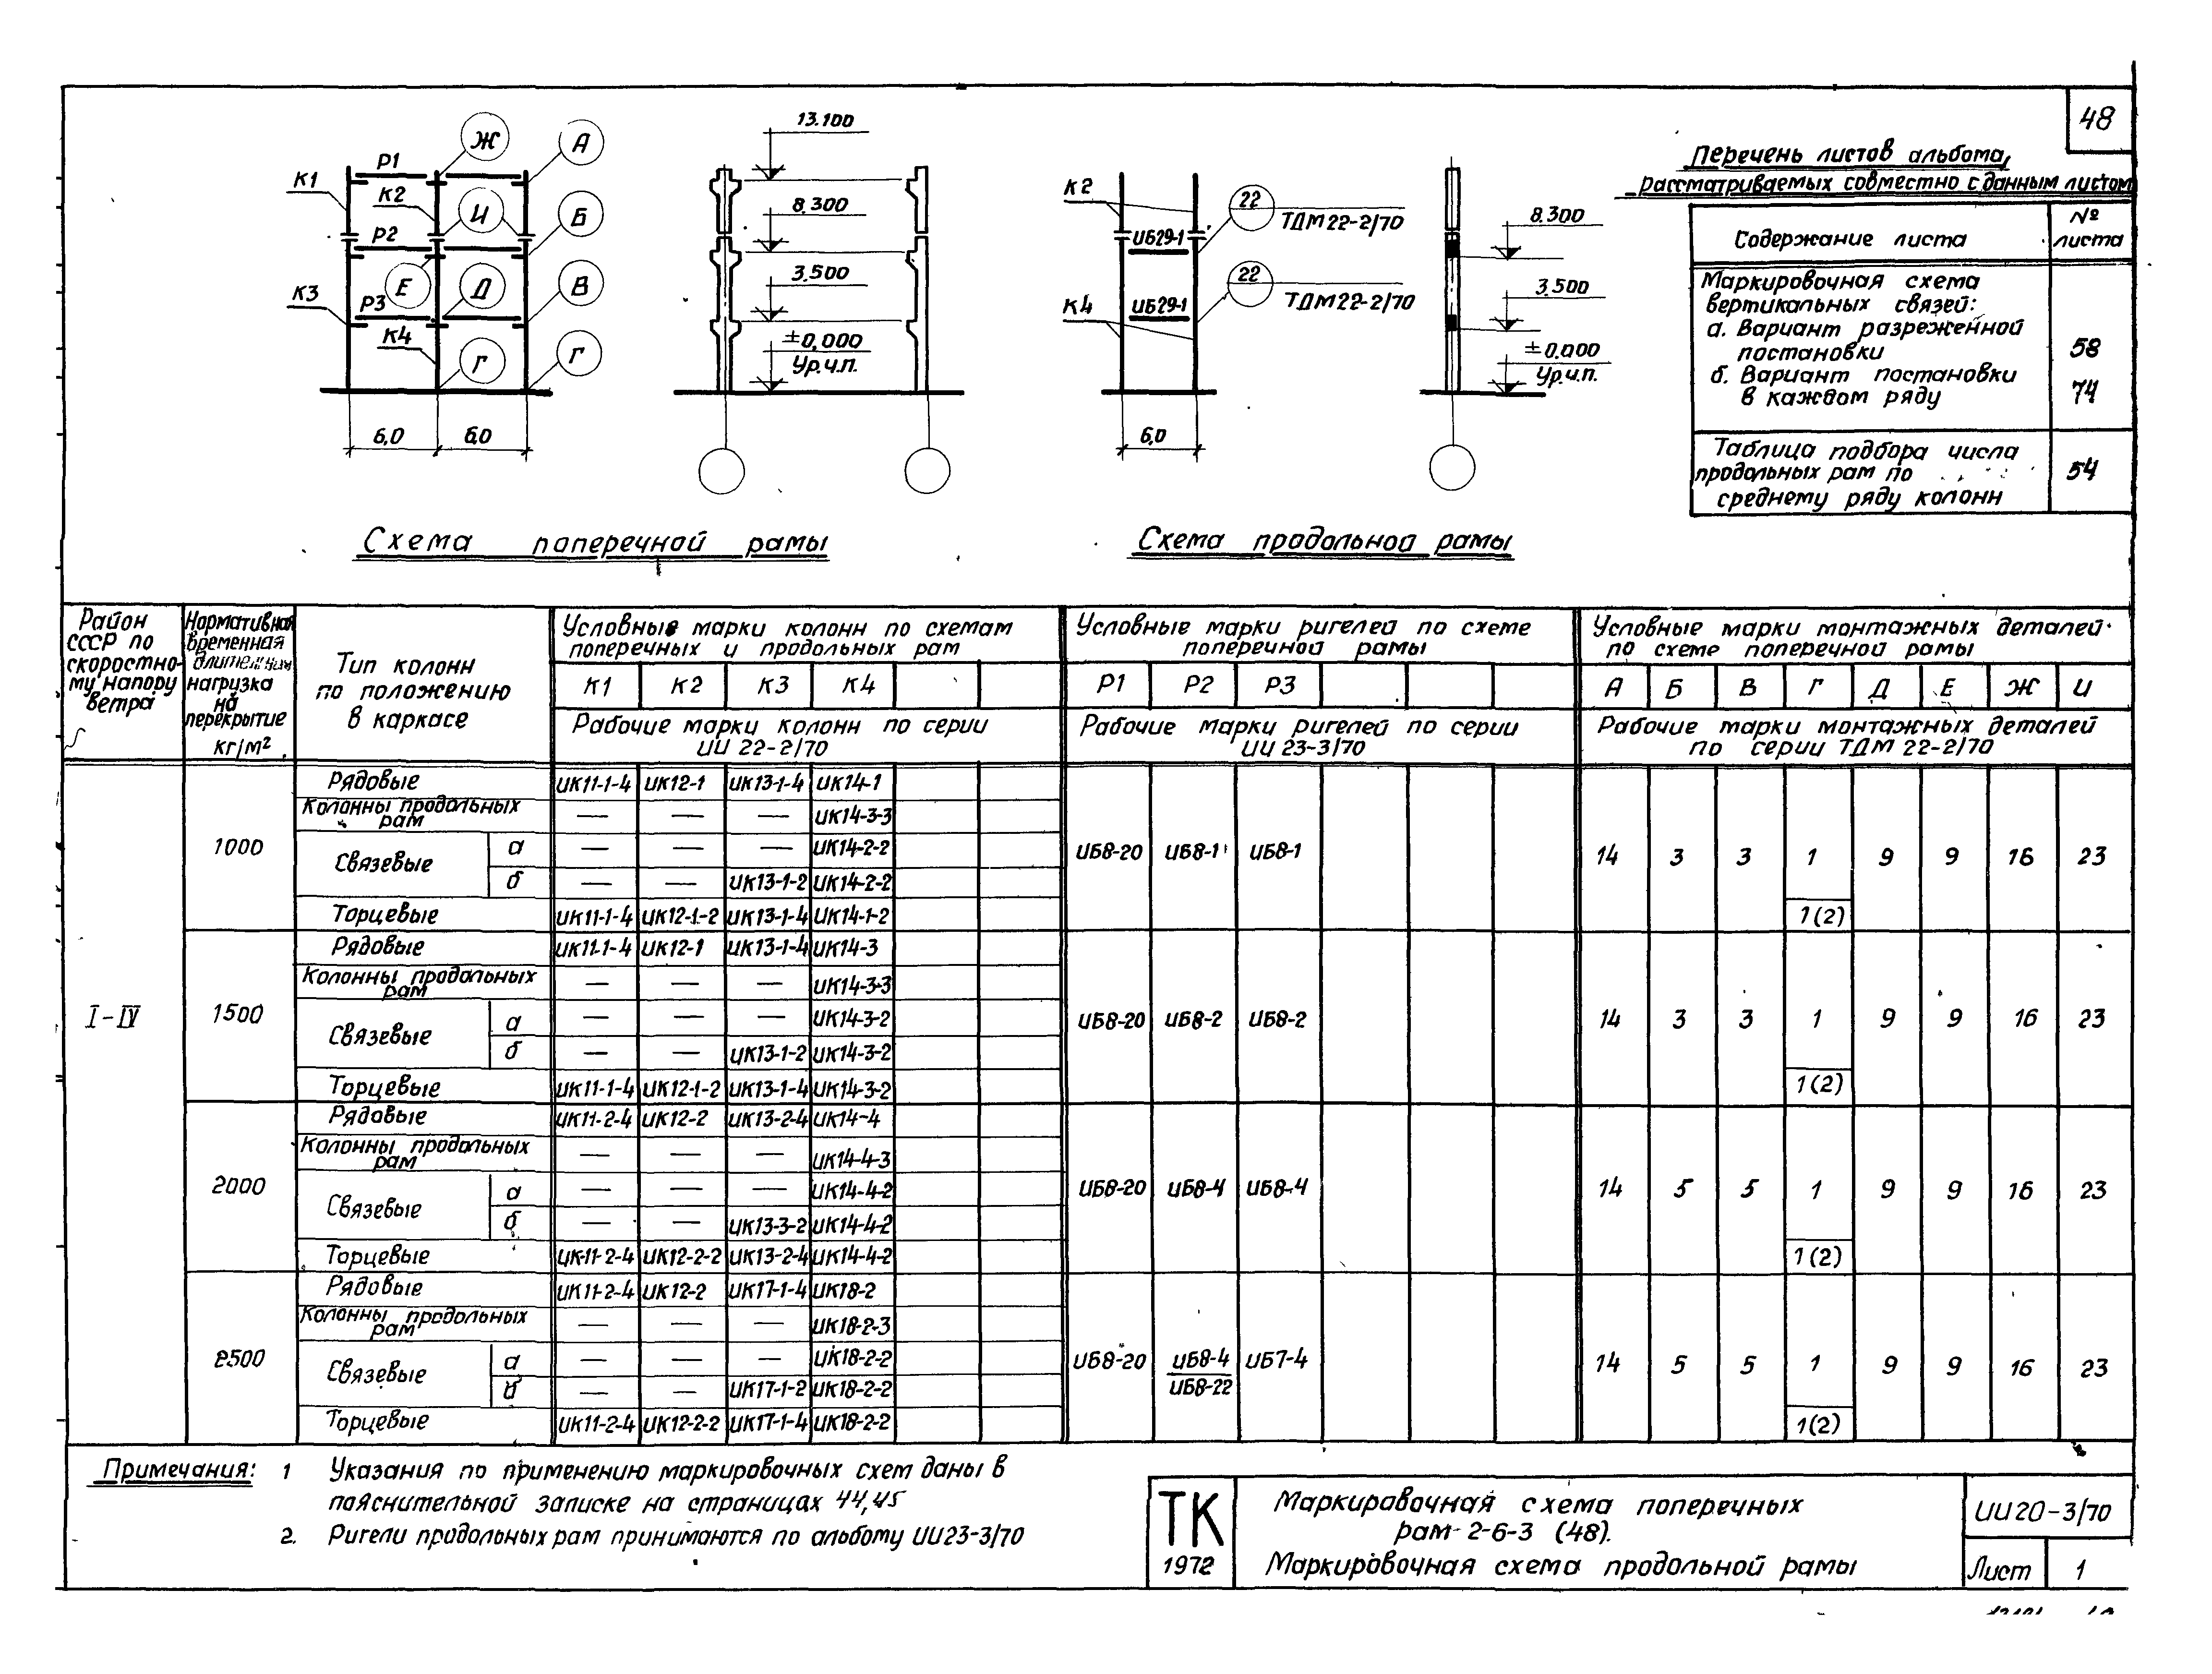 48
Перечень листов альбома,
рассматриваемых совместно с данным листом
Содержание листа
№ листа
Маркировочная схема
вертикальных связей:
а. Вариант разреженной
постановки
58
б. Вариант постановки
в каждом ряду
74
Таблица подбора числа
продольных рам по
среднему ряду колонн
54
К1 Р1 К2 Ж А
Р2 И Б
К3 Е Р3 Д В
К4 Г Г
6,0 6,0
13.100
8.300
3.500
±0,000
Ур.ч.п.
Схема поперечной рамы
К2 22
ТДМ22-2/70
ИБ29-1
22
ТДМ22-2/70
К4 ИБ29-1
6,0
8.300
3.500
±0.000
Ур.ч.п.
Схема продольной рамы
Район
СССР по
скоростно-
му напору
ветра
Нормативная
временная
длительная
нагрузка
на
перекрытие
кг/м²
Тип колонн
по положению
в каркасе
Условные марки колонн по схемам
поперечных и продольных рам
К1 К2 К3 К4
Рабочие марки колонн по серии
ИИ 22-2/70
Условные марки ригелей по схеме
поперечной рамы
Р1 Р2 Р3
Рабочие марки ригелей по серии
ИИ 23-3/70
Условные марки монтажных деталей
по схеме поперечной рамы
А Б В Г Д Е Ж И
Рабочие марки монтажных деталей
по серии ТДМ 22-2/70
I-IV
1000
Рядовые ИК11-1-4 ИК12-1 ИК13-1-4 ИК14-1
Колонны продольных
рам — — — ИК14-3-3
Связевые а — — — ИК14-2-2
б — — ИК13-1-2 ИК14-2-2
Торцевые ИК11-1-4 ИК12-1-2 ИК13-1-4 ИК14-1-2
ИБ8-20 ИБ8-1 ИБ8-1 14 3 3 1 9 9 16 23
1(2)
1500
Рядовые ИК11-1-4 ИК12-1 ИК13-1-4 ИК14-3
Колонны продольных
рам — — — ИК14-3-3
Связевые а — — — ИК14-3-2
б — — ИК13-1-2 ИК14-3-2
Торцевые ИК11-1-4 ИК12-1-2 ИК13-1-4 ИК14-3-2
ИБ8-20 ИБ8-2 ИБ8-2 14 3 3 1 9 9 16 23
1(2)
2000
Рядовые ИК11-2-4 ИК12-2 ИК13-2-4 ИК14-4
Колонны продольных
рам — — — ИК14-4-3
Связевые а — — — ИК14-4-2
б — — ИК13-3-2 ИК14-4-2
Торцевые ИК11-2-4 ИК12-2-2 ИК13-2-4 ИК14-4-2
ИБ8-20 ИБ8-4 ИБ8-4 14 5 5 1 9 9 16 23
1(2)
2500
Рядовые ИК11-2-4 ИК12-2 ИК17-1-4 ИК18-2
Колонны продольных
рам — — — ИК18-2-3
Связевые а — — — ИК18-2-2
б — — ИК17-1-2 ИК18-2-2
Торцевые ИК11-2-4 ИК12-2-2 ИК17-1-4 ИК18-2-2
ИБ8-20 ИБ8-4 ИБ7-4 14 5 5 1 9 9 16 23
ИБ8-22
1(2)
Примечания: 1 Указания по применению маркировочных схем даны в
пояснительной записке на страницах 44,45
2. Ригели продольных рам принимаются по альбому ИИ23-3/70
ТК
1972
Маркировочная схема поперечных
рам 2-6-3 (48).
Маркировочная схема продольной рамы
ИИ20-3/70
Лист 1